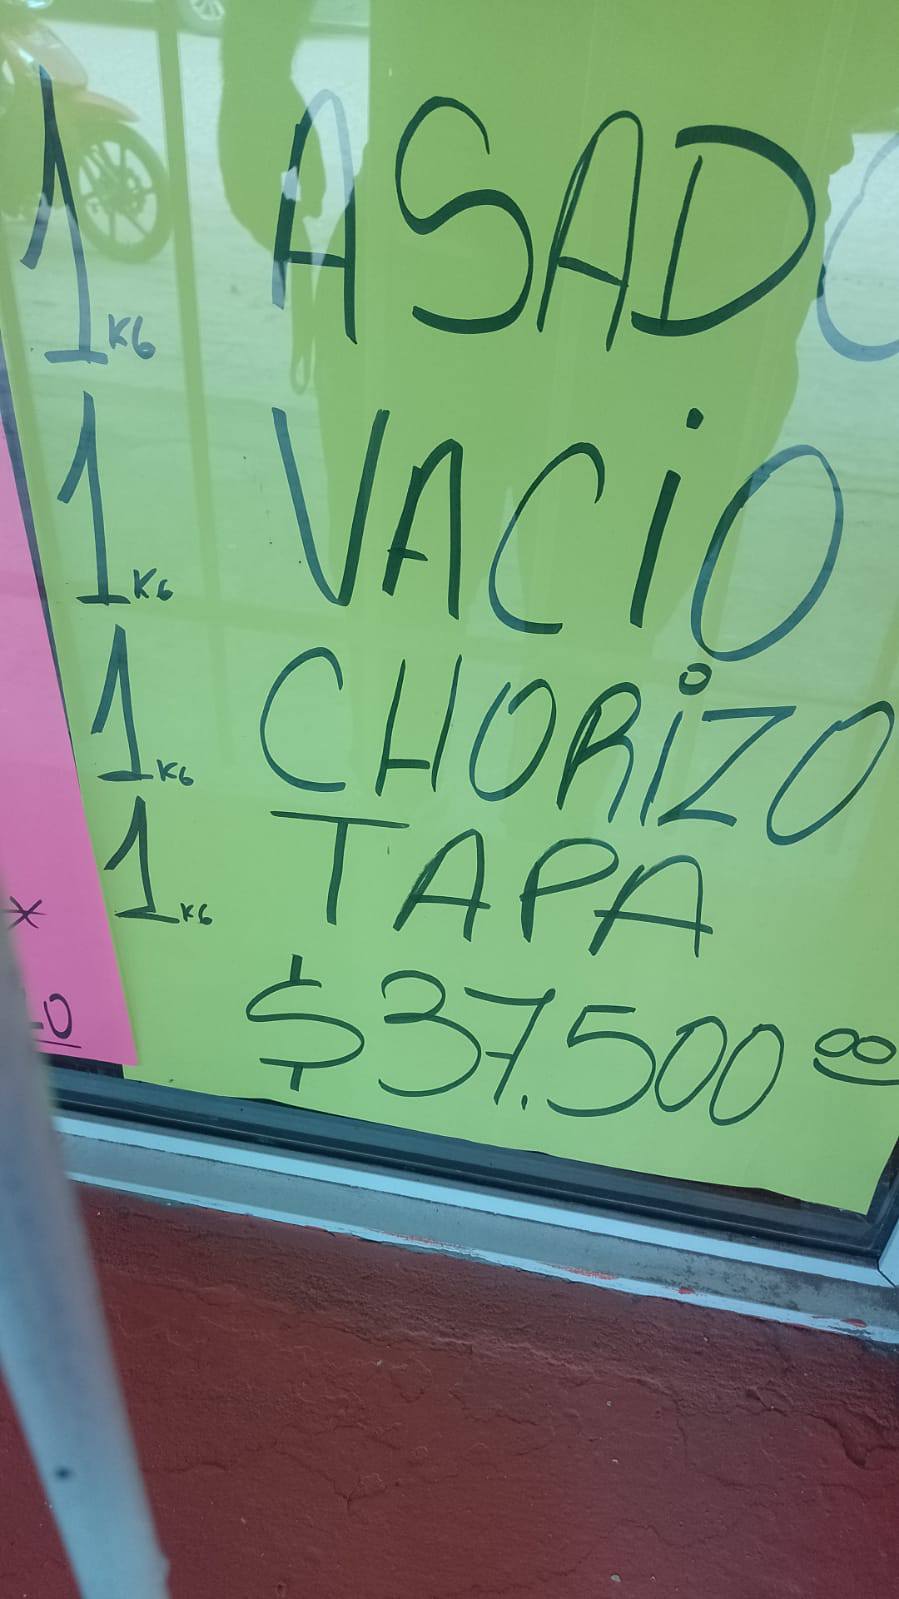 1 KG ASADO
1 KG VACIO
1 KG CHORIZO
1 KG TAPA
$37.500 00